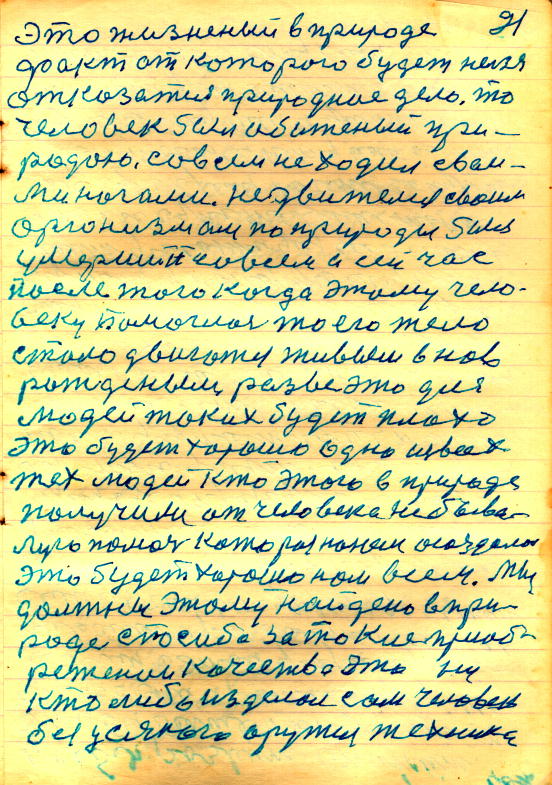 21
Это жизненый в природе
факт от которого будет нельзя
отказатся природное дело. то
человек был обиженый при-
родою. совсем не ходил свои-
ми ногами. не двигтелся своим
организмам по природы был
умерший совсем а сей час
после того когда этому чело-
веку помоглося то его тело
стало двигатся живым в нов
рожденым, разве это для
людей таких будет плохо
это будет хорошо одно из всех
тех людей кто этого в природе
получили от человека небыва-
лую помоч которая на нем оказалась
это будет хорошо нам всем. Мы
должны этому найдено в при-
роде спосиба за такие приоб-
ретении качества это ни
кто либо изделал сам человек
без усякого оружия техника